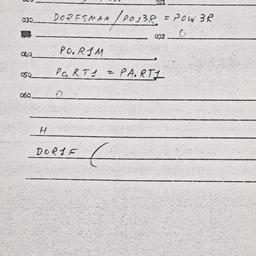 030 DORFSMAN/POW3R = POW3R
032 0
040 PO.R1M
050 PA.RT1 = PA.RT1
060 0
H
DOR1F (